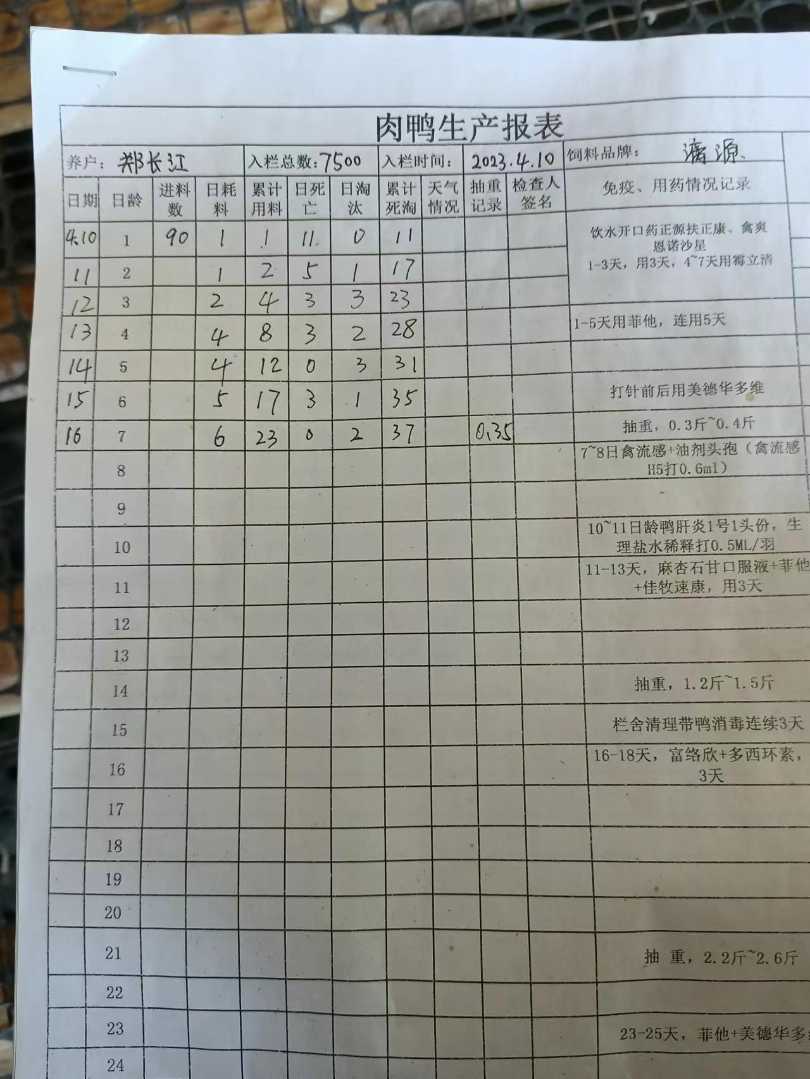 肉鸭生产报表
养户： 郑长江 入栏总数：7500 入栏时间： 2023.4.10 饲料品牌： 源
日期 日龄 进料数 日耗料 累计用料 日死亡 日淘汰 累计死淘 天气情况 抽重记录 检查人签名 免疫、用药情况记录
4.10 1 90 1 1 11 0 11 饮水开口药正源扶正康、禽爽
恩诺沙星
1-3天，用3天，4~7天用霉立清
11 2 1 2 5 1 17
12 3 2 4 3 3 23
13 4 4 8 3 2 28 1-5天用菲他，连用5天
14 5 4 12 0 3 31
15 6 5 17 3 1 35 打针前后用美德华多维
16 7 6 23 0 2 37 0.35 抽重，0.3斤~0.4斤
8 7~8日禽流感+油剂头孢（禽流感
H5打0.6ml）
9
10 10~11日龄鸭肝炎1号1头份，生
理盐水稀释打0.5ML/羽
11 11-13天，麻杏石甘口服液+菲他
+佳牧速康，用3天
12
13
14 抽重，1.2斤~1.5斤
15 栏舍清理带鸭消毒连续3天
16 16-18天，富络欣+多西环素，
3天
17
18
19
20
21 抽 重，2.2斤~2.6斤
22
23 23-25天，菲他+美德华多
24